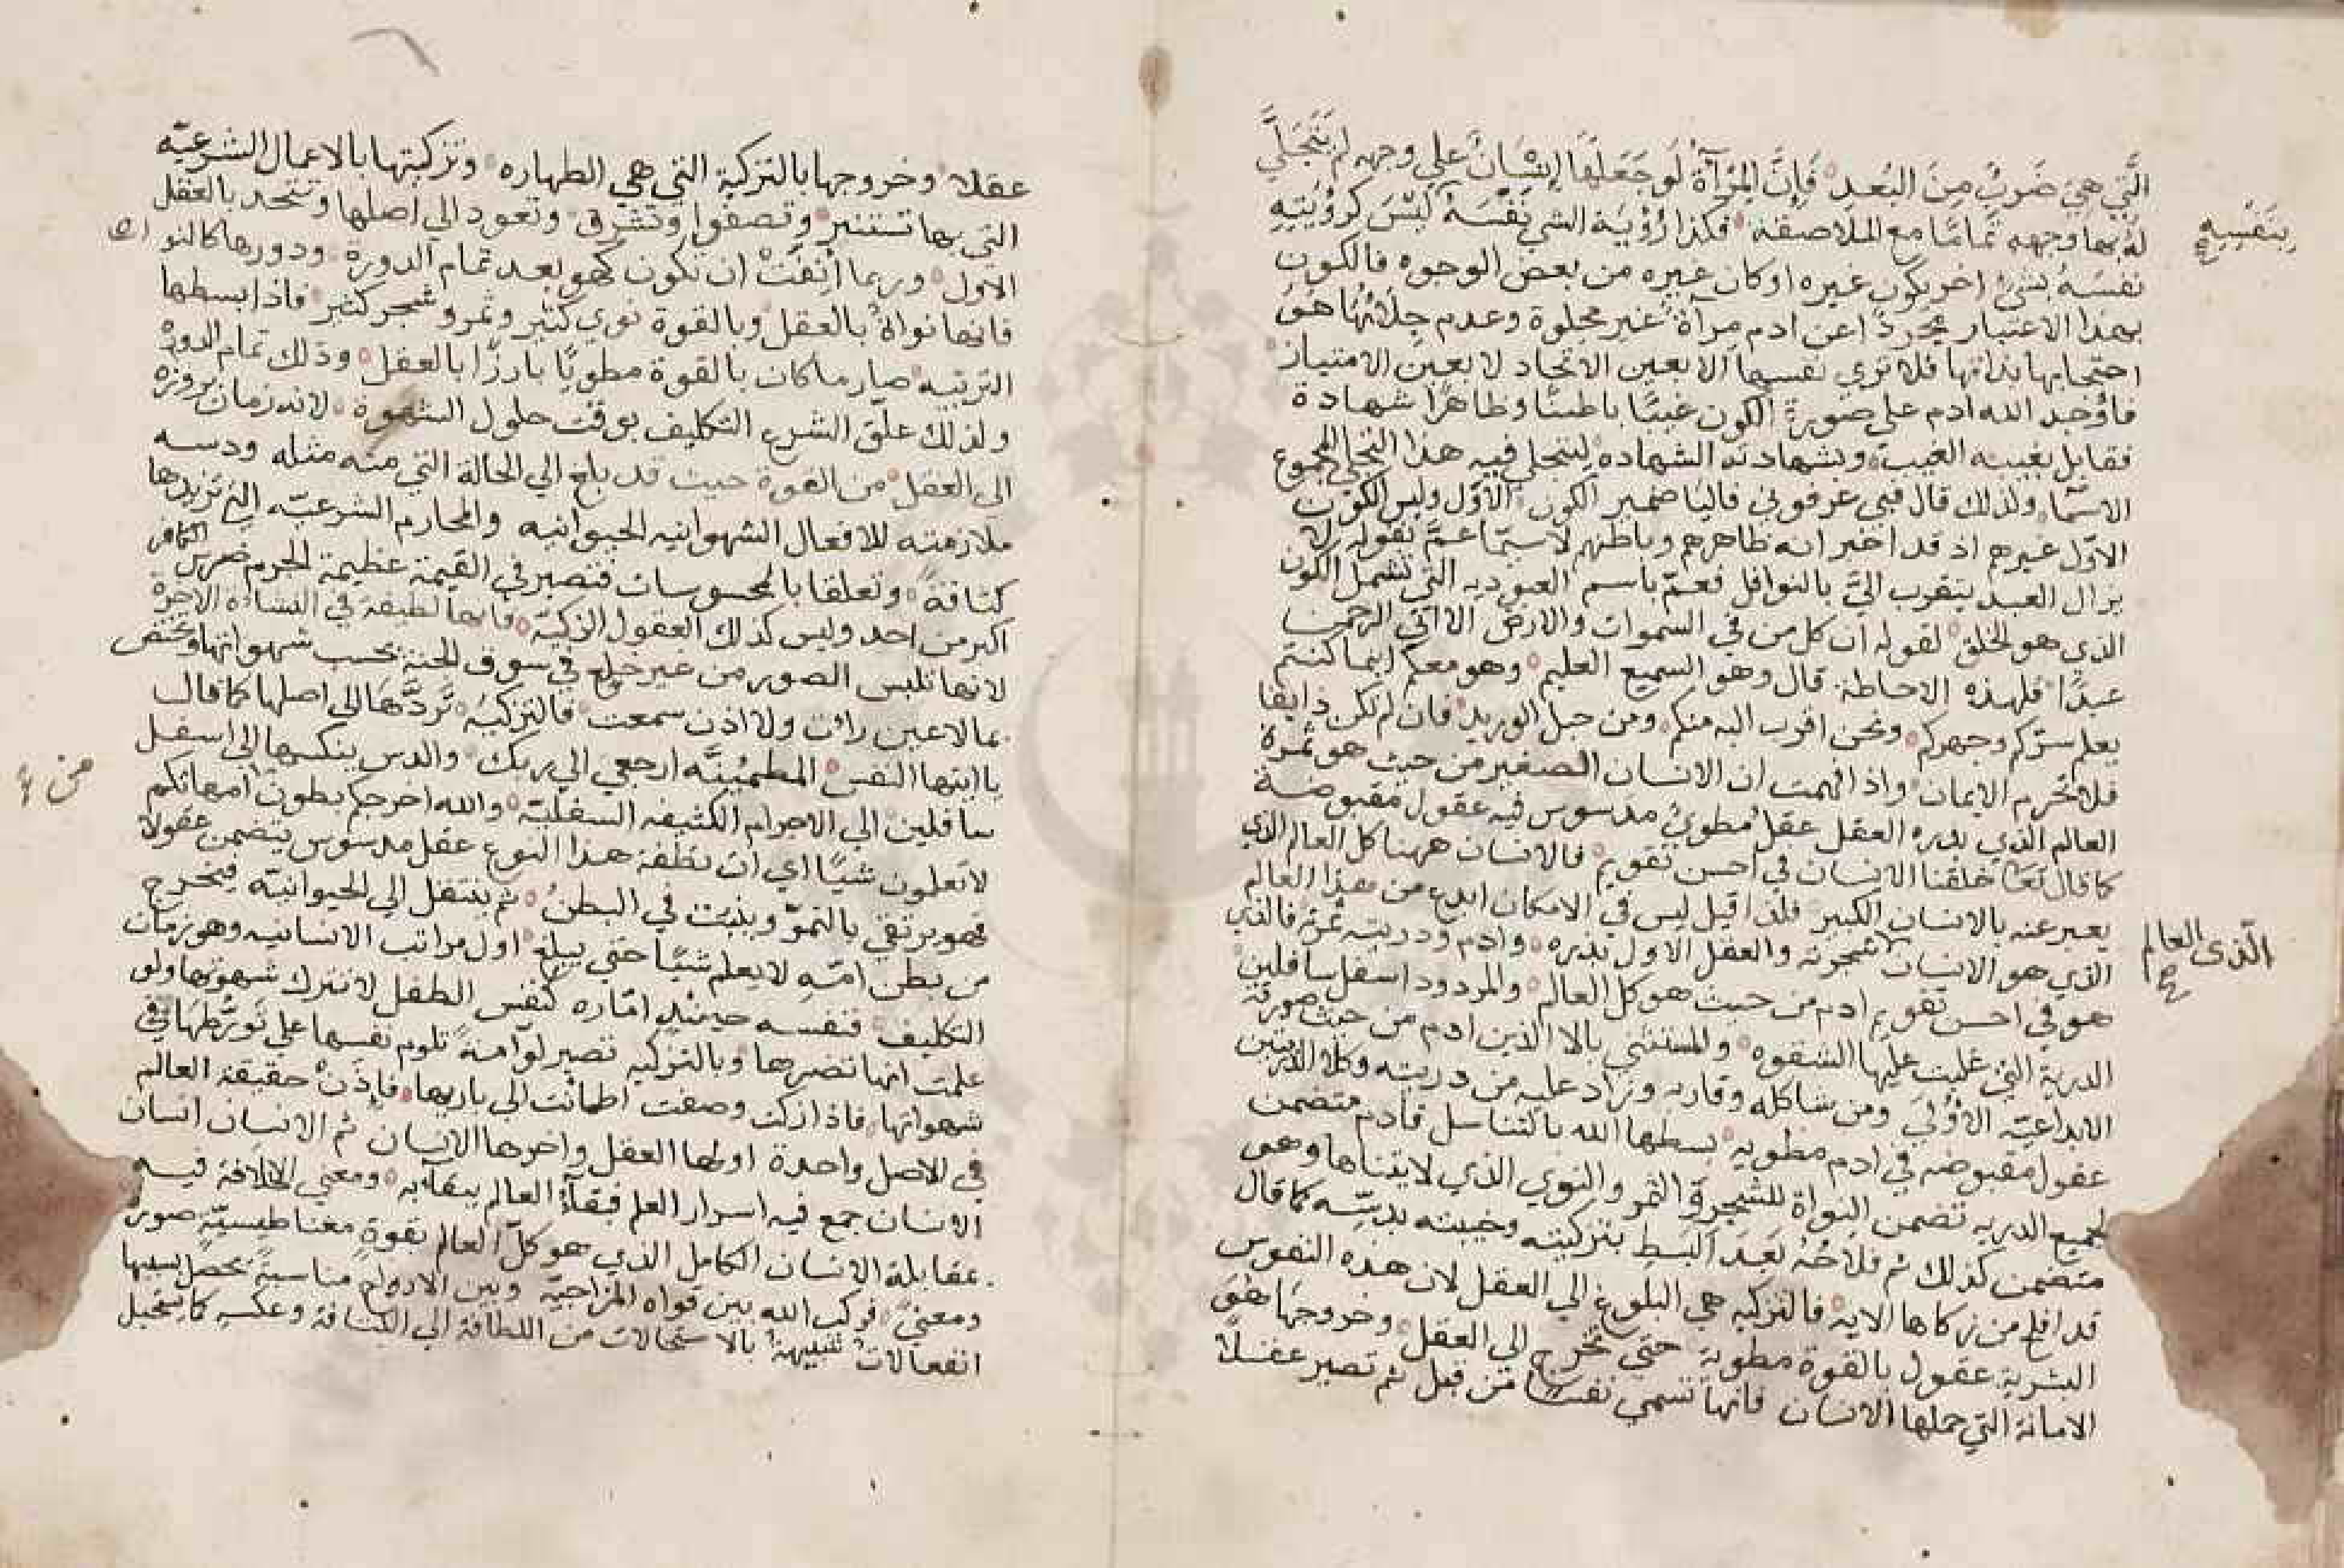 الَّتِي هِيَ ضَرْبٌ مِنَ البُعد فَإِنَّ المِرْآةَ لَو جَعَلَهَا إِنْسَانٌ علي وجهه لم يَتَجَلَّي
لهُ بها وجهه تمامًا مع الملاصقة فكذا رُؤيَة الشي نَفْسَهُ لَيْسَ كرُؤْيَتِهِ
بنَفْسِهِ
نفسَهُ بشيءٍ اخر يكون غيره او كان غيره من بعض الوجوه فالكون
بهذا الاعتبار مجردًا عن ادم مرآة غير مجلوة وعدم جلائها هو
احتجابها بذاتها فلا تري نفسها الا بعين الاتحاد لا بعين الامتياز
فأوجد الله ادم علي صورة الكون غيبًا باطنًا وظاهرًا شهادة
فقابل بغيبه الغيب وبشهادته الشهاده ليتجلي فيه هذا التجلي المجموع
الاسما ولذلك قال فبي عرفوني فاليا ضمير الكون الاول وليس الكون
الاول غيرهم اذ قد اخبر انه ظاهرهم وباطنهم لا سيما عمَّ بقوله لا
يزال العبد يتقرب اليَّ بالنوافل فعمّ باسم العبوديه التي تشمل الكون
الذي هو الخلق لقوله ان كل من في السموات والارض الا اتي الرحمن
عبدًا فلهذه الاحاطة قال وهو السميع العليم وهو معكم اينما كنتم
يعلم سركم وجهركم ونحن اقرب اليه منكم ومن حبل الوريد فان لم تكن ذايقا
فلا تحرم الايمان واذا فهمت ان الانسان الصغير من حيث هو ثمرة
العالم الذي بذره العقل عقل مطويٌ مدسوس فيه عقول مقبوضة
كما قال تعا خلقنا الانسان في احسن تقويم فالانسان ههنا كل العالم الذي
يعبر عنه بالانسان الكبير فلذا قيل ليس في الامكان ابدع من هذا العالم
الذي هو الانسان شجرته والعقل الاول بذره وادم وذريته ثمره فالذي
الّذي العالم
هو في احسن تقويم ادم من حيث هو كل العالم والمردود اسفل سافلين
الذرية التي غلبت عليها الشقوه والمستثني بالا الذين ادم من حيث صورته
الابداعيّه الاوُلي ومن شاكله وقاربه وزاد عليه من ذريته وكلا الذريتين
عقول مقبوضه في ادم مطويه بسطها الله بالتناسل فادم متضمن
لجميع الذريه تضمن النواة للشجرة والثمر والنوي الذي لا يتناها وهي
متضمن كذلك ثم فلاحُهُ بَعدَ البَسطِ بتزكيته وخيبته بدسِّه كما قال
قد افلح من زكاها الايه فالتزكيه هي البلوغ الي العقل لان هذه النفوس
البشرية عقول بالقوة مطوية حتي تخرج الي العقل وخروجها هو
الامانة التي حملها الانسان فانها تسمي نفسًا من قبل ثم تصير عقلًا
عقلا وخروجها بالتزكية التي هي الطهاره وتزكيتها بالاعمال الشرعيّه
التي بها تستنير وتصفوا وتشرق وتعود الي اصلها وتتحد بالعقل
الاول وربما أَنِفَتْ ان تكون كهو بعد تمام الدورة ودورها كالنواه
فانها نواة بالعقل وبالقوة نوي كثير وثمر وشجر كثير فاذا بسطها
الترتيبه صار ما كان بالقوة مطويًا بارزًا بالعقل وذلك تمام الدورة
ولذلك علق الشرع التكليف بوقت حلول الشهوة لانه زمان بروزه
الي العقل من القوة حيث قد بلغ الي الحالة التي منه مثله ودسه
ملازمته للافعال الشهوانيه الحيوانيه والمحارم الشرعيّه التي تزيدها
كثافة وتعلقا بالمحسوسات فتصير في القيمة عظيمة الجرم ضرس الكافر
اكبر من احد وليس كذلك العقول الزكيّة فانها لطيفة في النشاه الاخرة
لانها تلبس الصور من غير خلع في سوق الجنة بحسب شهواتها وتختص
بما لا عين رأت ولا اذن سمعت فالتزكية تردّها الي اصلها كما قال
يا ايتها النفس المطمئنَّه ارجعي الي ربك والدس ينكسها الي اسفل
سافلين الي الاجرام الكثيفه السفليّة والله اخرجكم بطون امهاتكم
من
لا تعلمون شيئًا اي ان نطفة هذا النوع عقل مدسوس يتضمن عقولا
فهو يرتقي بالنموّ وينبت في البطن ثم ينتقل الي الحيوانيّه فيخرج
من بطن امّه لا يعلم شيًا حتي يبلغ اول مراتب الانسانيه وهو زمان
التكليف فنفسه حينئذٍ امّاره كنفس الطفل لا تترك شهوتها ولو
علمت انها تضرها وبالتزكيه تصير لوّامةً تلوم نفسها علي تَورُّطِهَا في
شهواتها فاذا زكت وصفت اطمانت الي باريها فإذن حقيقة العالم
في الاصل واحدة اولها العقل واخرها الانسان ثم الانسان انسان
الانسان جمع فيه اسرار العلم فبقآءُ العالم ببقآيه ومعني الخلافة فيه
مقابلة الانسان الكامل الذي هو كلّ العالم بقوةٍ مغناطيسيّةٍ صورةً
ومعنيً فركب الله بين قواه المزاجيّة وبين الارواح مناسبةً تحصل بسببها
انفعالات شبيهةٌ بالاستحالات من اللطافة الي الكثافة وعكسه كما يستحيل